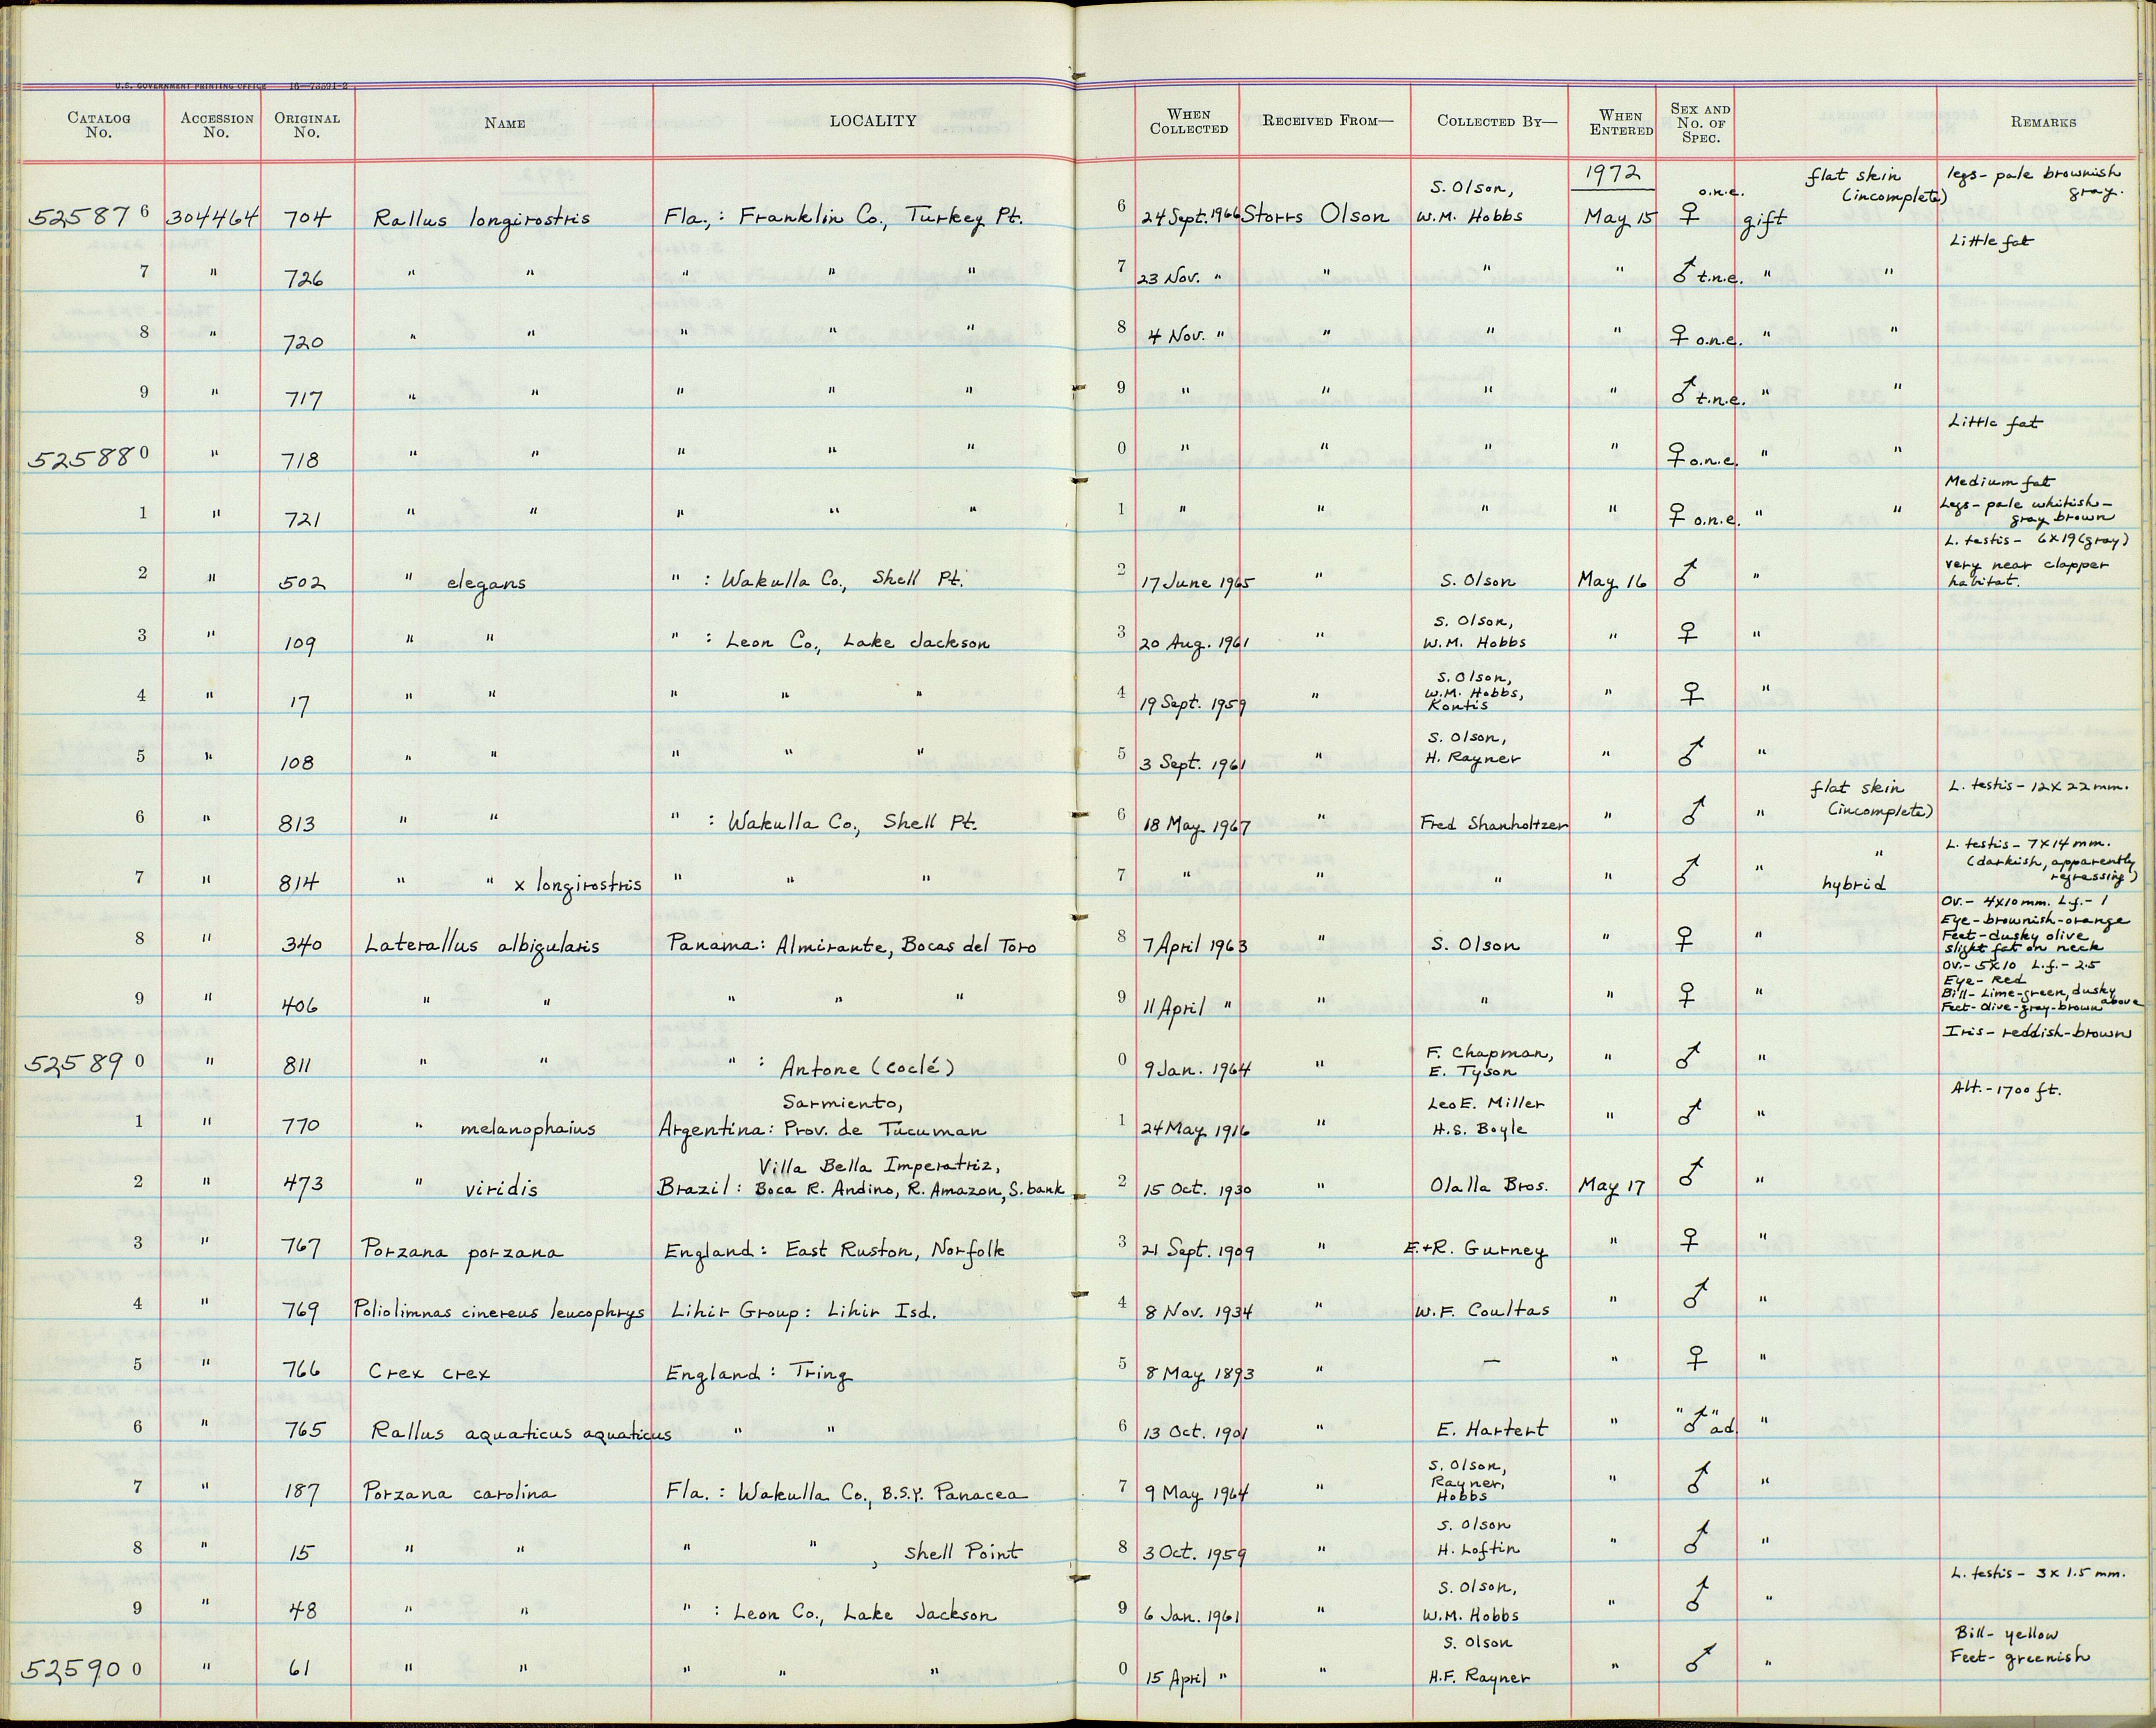 U.S. GOVERNMENT PRINTING OFFICE 16—73391-2
CATALOG No. ACCESSION No. ORIGINAL No. NAME LOCALITY WHEN COLLECTED RECEIVED FROM— COLLECTED BY— WHEN ENTERED SEX AND No. OF SPEC. REMARKS
525876 304464 704 Rallus longirostris Fla.: Franklin Co., Turkey Pt. 6 24 Sept. 1966 Storrs Olson S. Olson, W.M. Hobbs 1972 May 15 ♀ o.n.e. gift flat skin (incomplete) legs - pale brownish gray.
7 " 726 " " " " " 7 23 Nov. " " " " ♂ t.n.e. " " Little fat
8 " 720 " " " " " 8 4 Nov. " " " " ♀ o.n.e. " "
9 " 717 " " " " " 9 " " " " ♂ t.n.e. " "
525880 " 718 " " " " " 0 " " " " ♀ o.n.e. " " Little fat
1 " 721 " " " " " 1 " " " " ♀ o.n.e. " " Medium fat Legs - pale whitish-gray brown
2 " 502 " elegans " : Wakulla Co., Shell Pt. 2 17 June 1965 " S. Olson May 16 ♂ " L. testis - 6x19 (gray) very near clapper habitat.
3 " 109 " " " : Leon Co., Lake Jackson 3 20 Aug. 1961 " S. Olson, W.M. Hobbs " ♀ "
4 " 17 " " " " " 4 19 Sept. 1959 " S. Olson, W.M. Hobbs, Kontis " ♀ "
5 " 108 " " " " " 5 3 Sept. 1961 " S. Olson, H. Rayner " ♂ "
6 " 813 " " " : Wakulla Co., Shell Pt. 6 18 May 1967 " Fred Shanholtzer " ♂ " flat skin (incomplete) L. testis - 12x22 mm.
7 " 814 " " x longirostris " " " 7 " " " " ♂ " " hybrid L. testis - 7x14 mm. (darkish, apparently regressing)
8 " 340 Laterallus albigularis Panama: Almirante, Bocas del Toro 8 7 April 1963 " S. Olson " ♀ " Ov. - 4x10 mm. L.f. - 1 Eye - brownish-orange Feet - dusky olive slight fat on neck
9 " 406 " " " " " 9 11 April " " " " ♀ " Ov. - 5x10 L.f. - 2.5 Eye - Red Bill - Lime-green, dusky above Feet - Olive-gray-brown
525890 " 811 " " " : Antone (Coclé) 0 9 Jan. 1964 " F. Chapman, E. Tyson " ♂ " Iris - reddish-brown
1 " 770 " melanophaius Argentina: Sarmiento, Prov. de Tucuman 1 24 May 1916 " Leo E. Miller H.S. Boyle " ♂ " Alt. - 1700 ft.
2 " 473 " viridis Brazil: Villa Bella Imperatriz, Boca R. Andino, R. Amazon, S. bank 2 15 Oct. 1930 " Olalla Bros. May 17 ♂ "
3 " 767 Porzana porzana England: East Ruston, Norfolk 3 21 Sept. 1909 " E.+R. Gurney " ♀ "
4 " 769 Poliolimnas cinereus leucophrys Lihir Group: Lihir Isd. 4 8 Nov. 1934 " W.F. Coultas " ♂ "
5 " 766 Crex crex England: Tring 5 8 May 1893 " — " ♀ "
6 " 765 Rallus aquaticus aquaticus " " 6 13 Oct. 1901 " E. Hartert " "♂" ad. "
7 " 187 Porzana carolina Fla.: Wakulla Co., B.S.Y. Panacea 7 9 May 1964 " S. Olson, Rayner, Hobbs " ♂ "
8 " 15 " " " " , Shell Point 8 3 Oct. 1959 " S. Olson H. Loftin " ♂ "
9 " 48 " " " : Leon Co., Lake Jackson 9 6 Jan. 1961 " S. Olson, W.M. Hobbs " ♂ " L. testis - 3x1.5 mm.
525900 " 61 " " " " " 0 15 April " " S. Olson H.F. Rayner " ♂ " Bill - yellow Feet - greenish